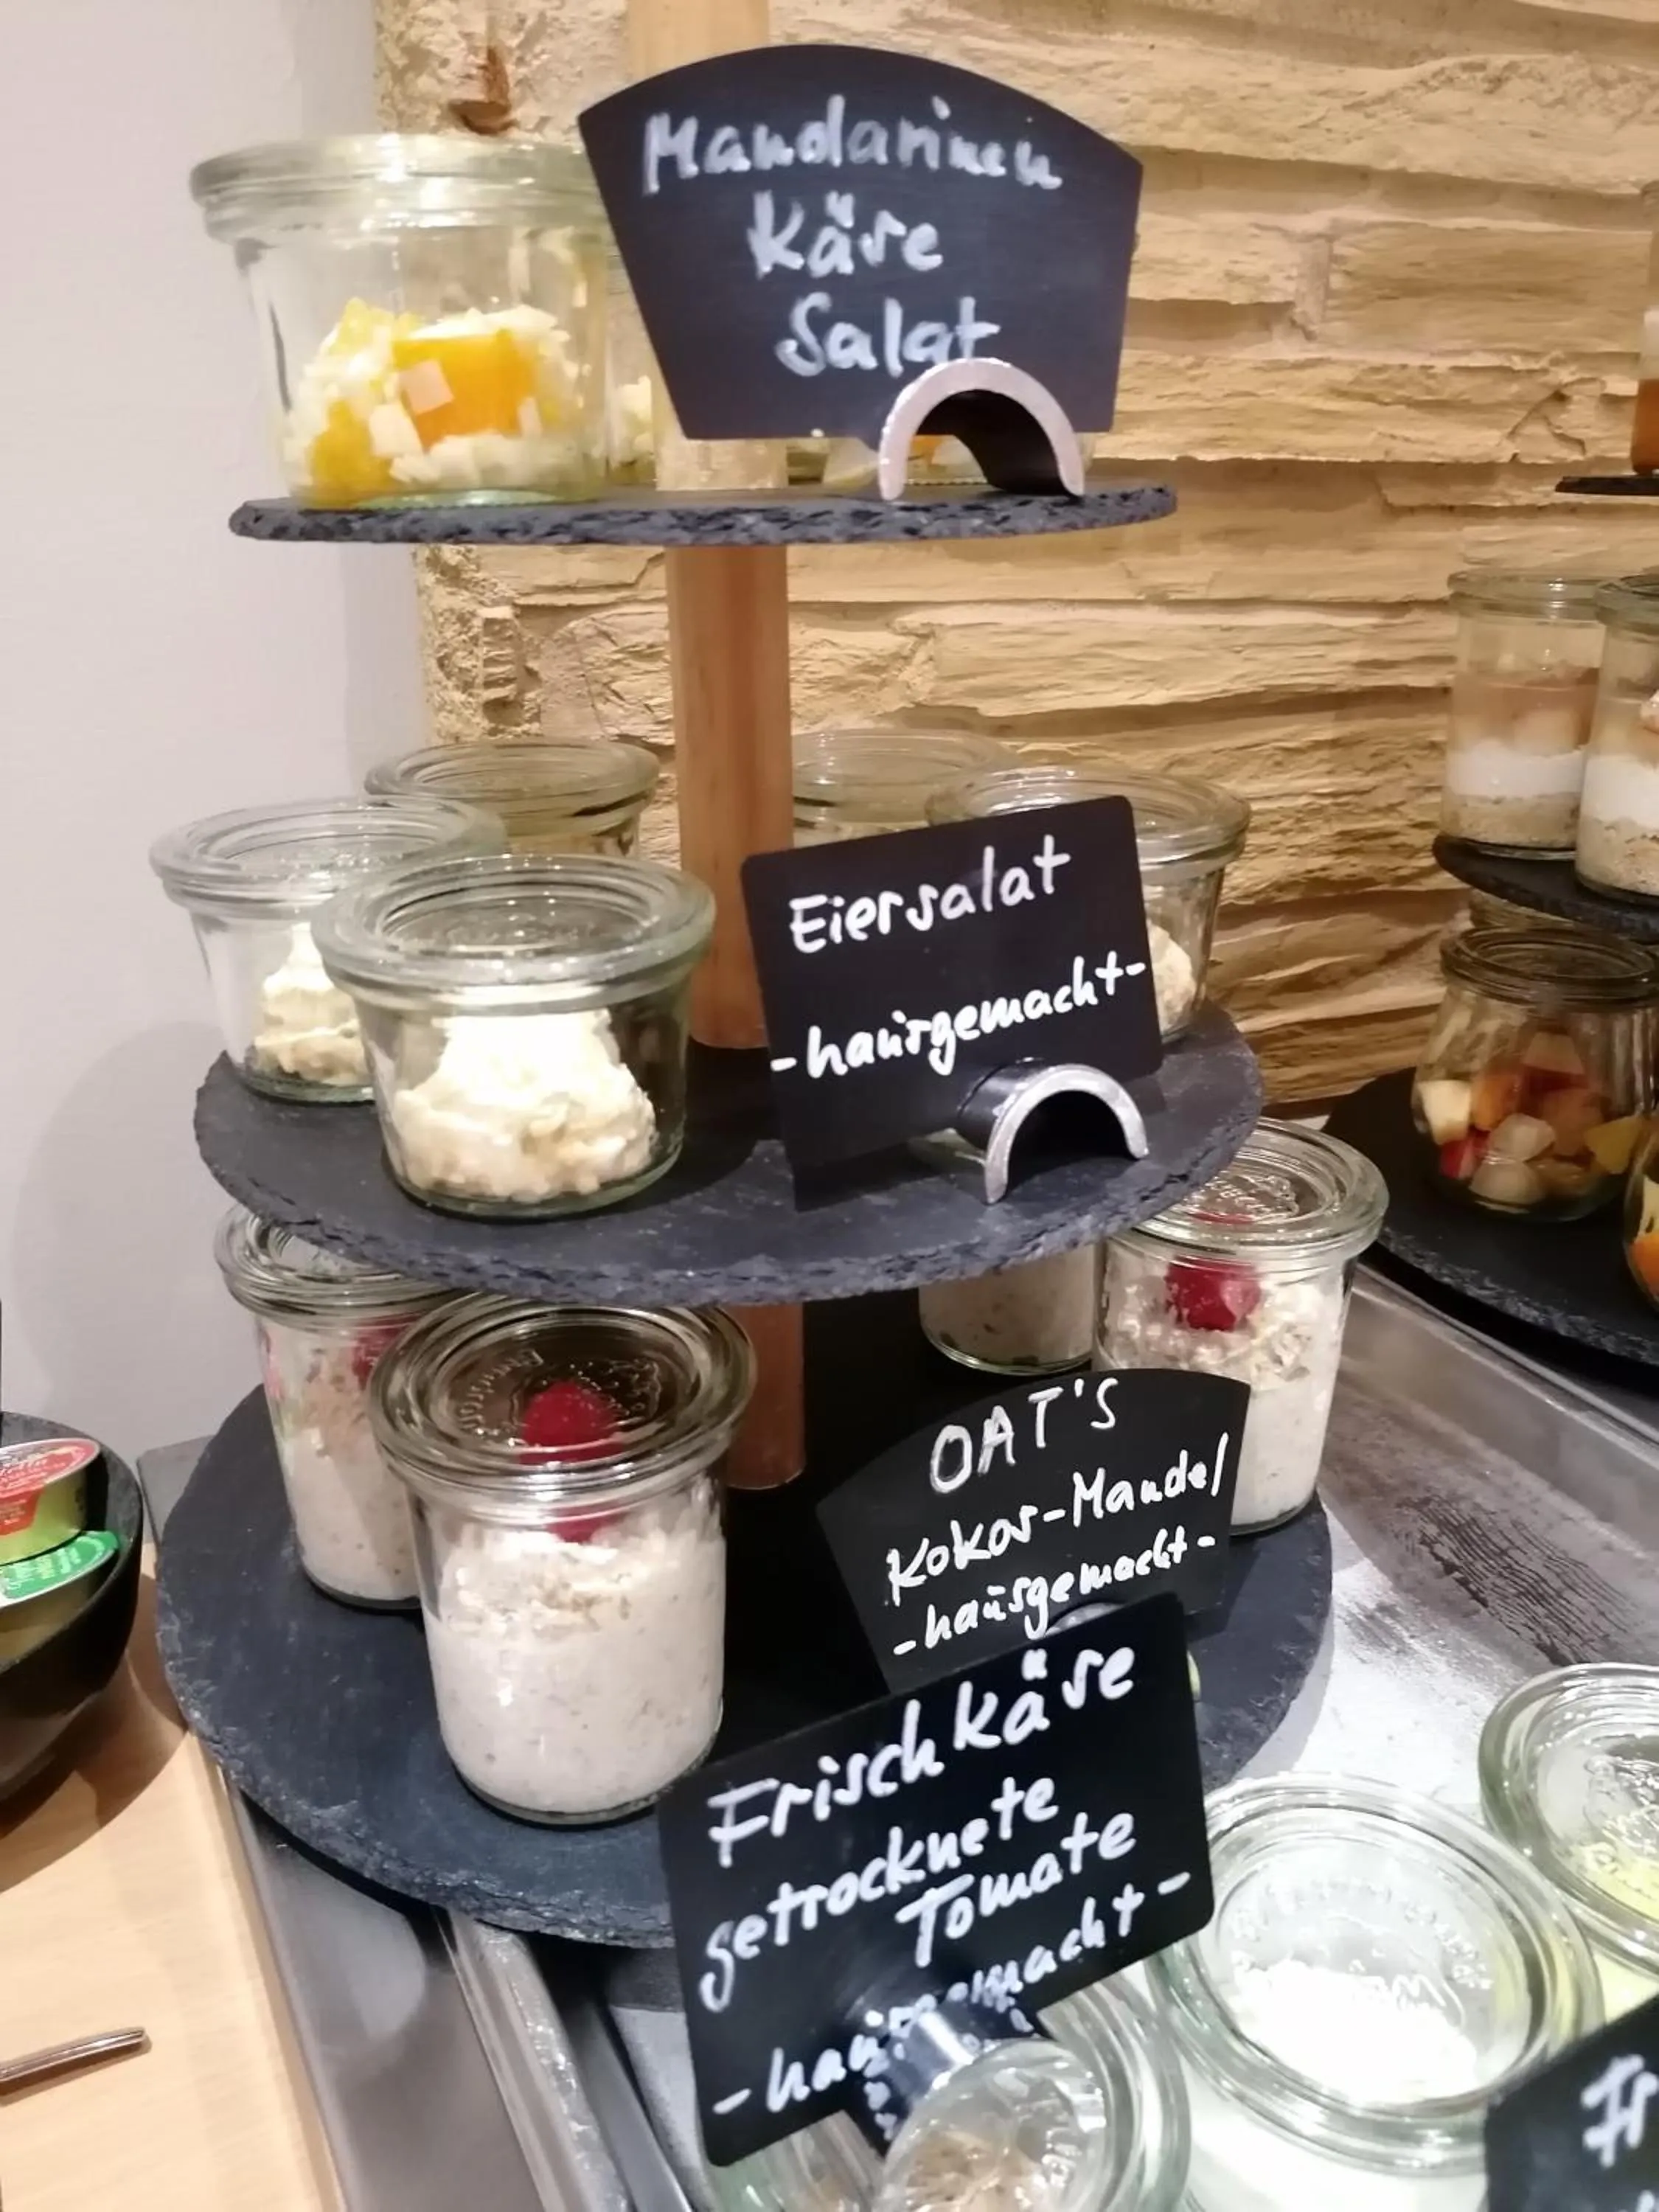 Mandarinen
Käse
Salat
Eiersalat
-hausgemacht-
OAT'S
Kokos-Mandel
-hausgemacht-
Frischkäse
getrocknete
Tomate
-hausgemacht-
Fr